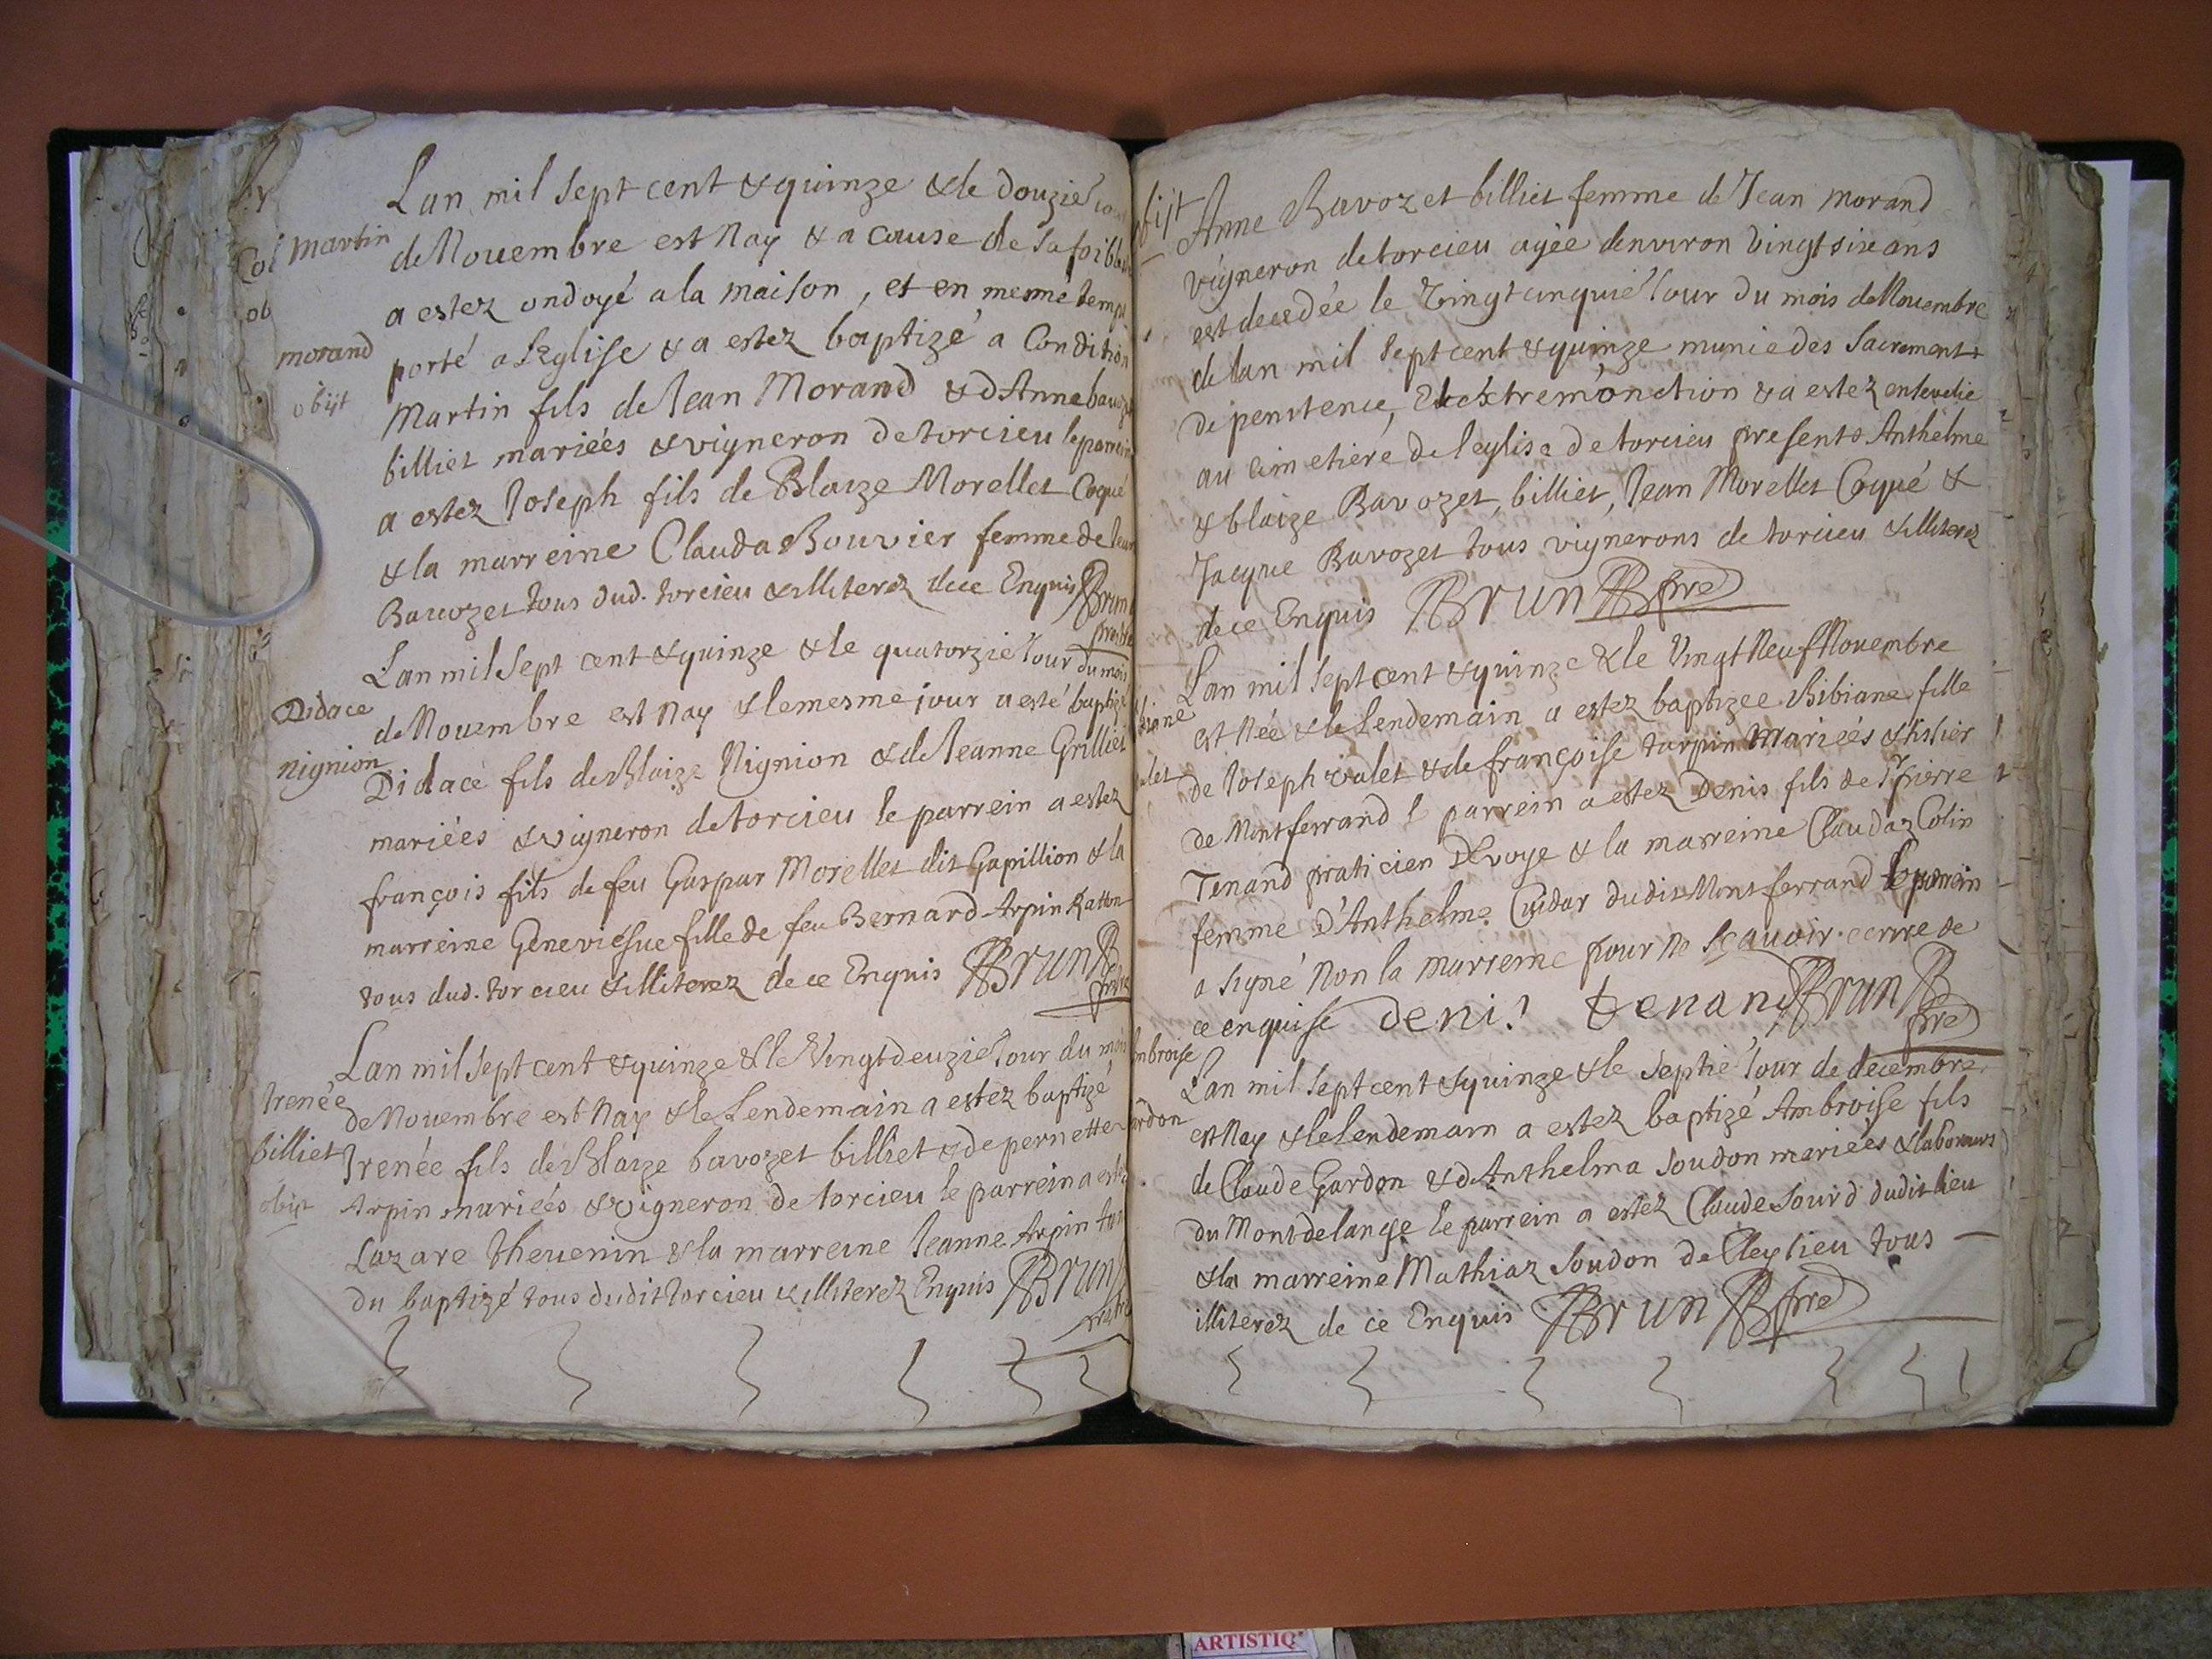 Lan mil sept cent & quinze & le douzie Jour
Martin
de Nouembre est Nay & a cause de sa foibless
a estez ondoyé a la maison, et en meme temp
morand
porté a lEglise & a estez baptizé a Condition
obijt
Martin fils de Jean Morand & dAnne bavozet
billiet mariées & vigneron de torcieu le parrein
a estez Joseph fils de Blaize Morellet Coqué
& la marreine Clauda Bouvier femme de Jean
Bavozet tous dud. torcieu & illiterez de ce Enquis Brun
prestre
Lan mil sept cent & quinze & le quatorzie Jour du mois
Didace
de Nouembre est Nay & le mesme jour a esté baptizé
nignion
Didace fils de Blaize Nignion & de Jeanne Grilliet
mariées & vigneron de torcieu le parrein a estez
françois fils de feu Gaspar Morellet dit Gapillion & la
marreine Genevieſue fille de feu Bernard Arpin Ratton
tous dud. torcieu & illiterez de ce Enquis Brun
prestre
Lan mil sept cent & quinze & le Vingtdeuzie Jour du mois
Irenée
de Nouembre est Nay & le Lendemain a estez baptizé
billiet
Irenée fils de Blaize bavozet billiet & de pernette
obijt
Arpin mariées & vigneron de torcieu le parrein a estez
Lazare thevenin & la marreine Jeanne Arpin tan
du baptizé tous dudit torcieu & illiterez Enquis Brun
prestre
obijt
Anne Bavozet billiet femme de Jean morand
vigneron de torcieu agée denviron vingt six ans
est decedée le Vingt cinquie Jour du mois de Nouembre
de lan mil sept cent & quinze munie des Sacrements
de penitence, Et dextremonction & a estez ensevelie
au cimetiere de leglise de torcieu presents Anthelme
& blaize Bavozet, billiet, Jean Morellet Coqué &
Jacque Bavozet tous vignerons de torcieu & illiterez
de ce Enquis Brun pre
Lan mil sept cent & quinze & le Vingt Neuf Nouembre
biane
est Née & le Lendemain a estez baptizee Bibiane fille
alet
de Joseph valet & de françoise turpin Mariées & tisier
de Montferrand l parrein a estez Denis fils de Sr pierre
Tenand praticien & la marreine Claudaz Colin
femme d'Anthelme Cuidar dudit Montferrand Le parrein
a signé Non la marreine pour ne Sçauoir ecrire de
ce enquise deni! tenand Brun
pre
mbroise
Lan mil sept cent & quinze & le septie Jour de decembre
ardon
est Nay & le lendemain a estez baptizé Ambroise fils
de Claude Gardon & dAnthelma Soudon mariées & laboreurs
du Montdelange le parrein a estez Claude Sourd dudit lieu
& la marreine Mathiaz Soudon de Cleyzieu tous
illiterez de ce Enquis Brun pre
ARTISTIQ